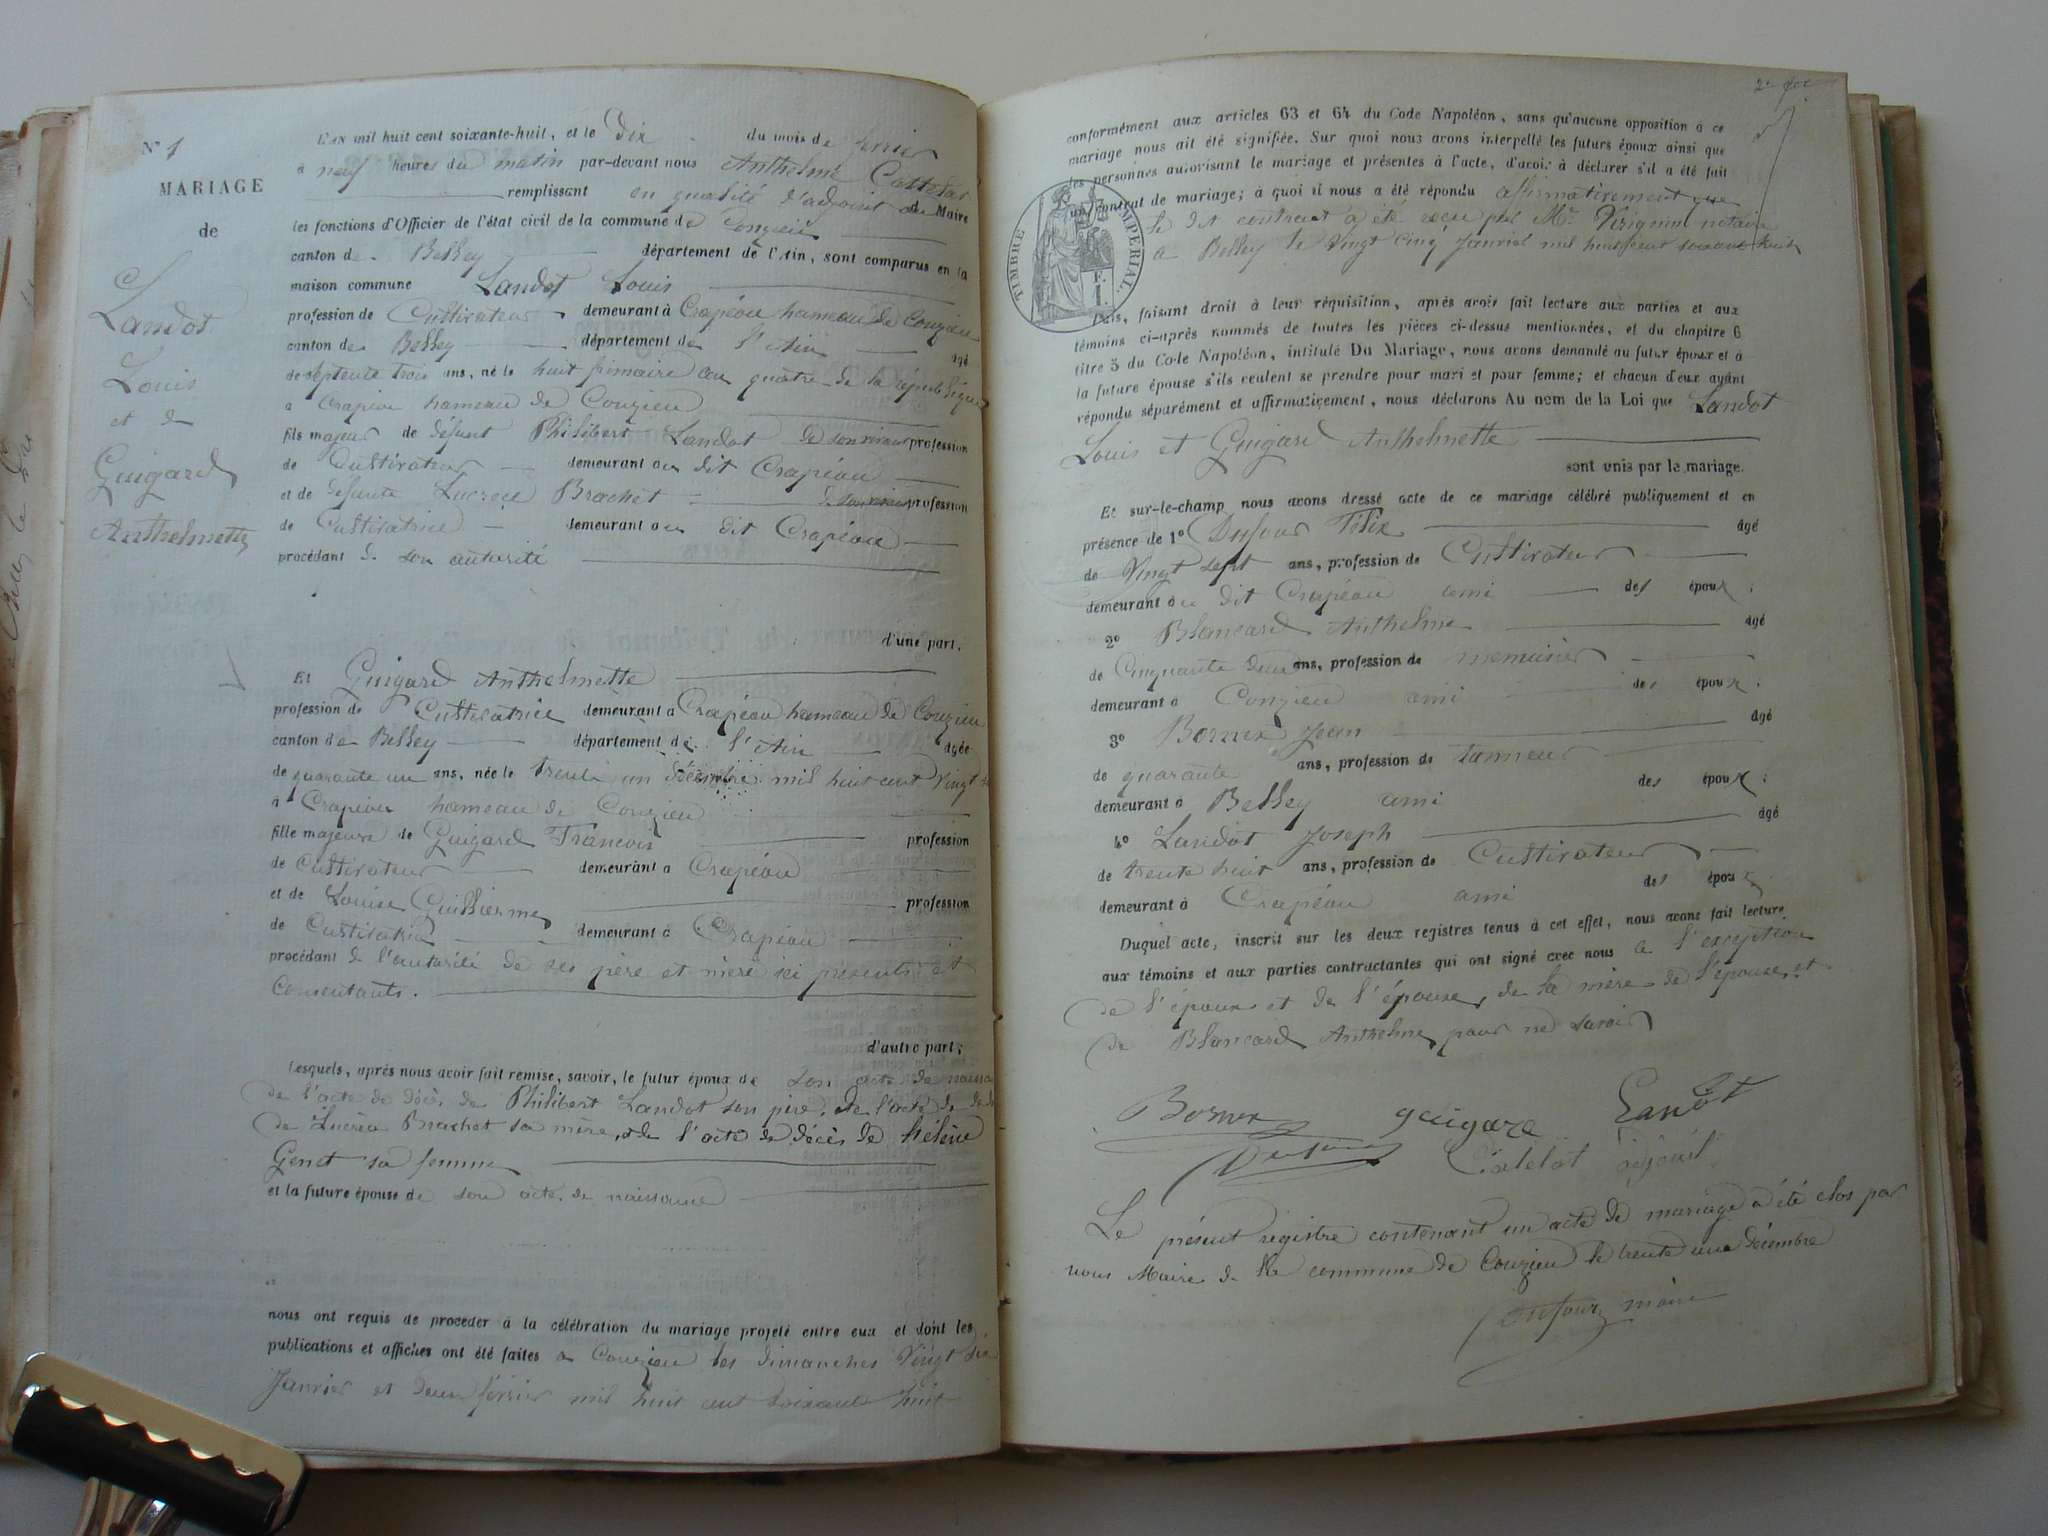 N° 1
MARIAGE
de
Landot
Louis
et de
Guigard
Anthelmette
L'AN mil huit cent soixante-huit, et le dix du mois de
à neuf heures du matin par-devant nous Anthelme Cattelot
remplissant en qualité d'adjoint de Maire
les fonctions d'Officier de l'état civil de la commune de Conzieu
canton de Belley département de l'Ain, sont comparus en la
maison commune Landot Louis
profession de Cultivateur demeurant à Crapéou hameau de Conzieu
canton de Belley département de l'Ain âgé
de septente trois ans, né le huit frimaire an quatre de la république
à Crapéou hameau de Conzieu
fils majeur de défunt Philibert Landot de son vivant profession
de Cultivateur demeurant au dit Crapéou
et de défunte Lucrèce Brachet profession
de Cultivatrice demeurant au dit Crapéou
procédant de son autorité
d'une part.
Et Guigard Anthelmette
profession de Cultivatrice demeurant à Crapéou hameau de Conzieu
canton de Belley département de l'Ain âgée
de quarante un ans, née le trente un décembre mil huit cent vingt
à Crapéou hameau de Conzieu
fille majeure de Guigard François profession
de Cultivateur demeurant à Crapéou
et de Louise Guillierme profession
de Cultivatrice demeurant à Crapéou
procédant de l'autorité de ses père et mère ici présents et
Consentants.
d'autre part;
Lesquels, après nous avoir fait remise, savoir, le futur époux de son acte de
de l'acte de décès de Philibert Landot son père, de l'acte de
de Lucrèce Brachet sa mère, et de l'acte de décès de hélène
Genet sa femme
et la future épouse de son acte de naissance
nous ont requis de procéder à la célébration du mariage projeté entre eux et dont les
publications et affiches ont été faites à Conzieu les dimanches Vingt six
Janvier et deux février mil huit cent soixante huit
conformément aux articles 63 et 64 du Code Napoléon, sans qu'aucune opposition à ce
mariage nous ait été signifiée. Sur quoi nous avons interpellé les futurs époux ainsi que
les personnes autorisant le mariage et présentes à l'acte, d'avoir à déclarer s'il a été fait
un contrat de mariage; à quoi il nous a été répondu affirmativement que
le dit contrat a été reçu par Mr. notaire
à Belley le vingt cinq janvier mil huit cent soixante huit
TIMBRE IMPERIAL
F.
1.
Puis, faisant droit à leur réquisition, après avoir fait lecture aux parties et aux
témoins ci-après nommés de toutes les pièces ci-dessus mentionnées, et du chapitre 6
titre 5 du Code Napoléon, intitulé Du Mariage, nous avons demandé au futur époux et à
la future épouse s'ils veulent se prendre pour mari et pour femme; et chacun d'eux ayant
répondu séparément et affirmativement, nous déclarons Au nom de la Loi que Landot
Louis et Guigard Anthelmette
sont unis par le mariage.
Et sur-le-champ nous avons dressé acte de ce mariage célébré publiquement et en
présence de 1° Dufour Félix âgé
de Vingt sept ans, profession de Cultivateur
demeurant au dit Crapéou ami des époux;
2° Blancard Anthelme âgé
de Cinquante deux ans, profession de menuisier
demeurant à Conzieu ami des époux;
3° Bornex Jean âgé
de quarante ans, profession de tanneur
demeurant à Belley ami des époux;
4° Landot Joseph âgé
de trente huit ans, profession de Cultivateur
demeurant à Crapéou ami des époux
Duquel acte, inscrit sur les deux registres tenus à cet effet, nous avons fait lecture
aux témoins et aux parties contractantes qui ont signé avec nous à l'exception
de l'époux et de l'épouse, de la mère de l'épouse, et
de Blancard Anthelme, pour ne savoir
Bornex guigard Landot
Dufour Catelot adjoint
Le présent registre contenant un acte de mariage a été clos par
nous Maire de la commune de Conzieu le trente une décembre
Dufour maire